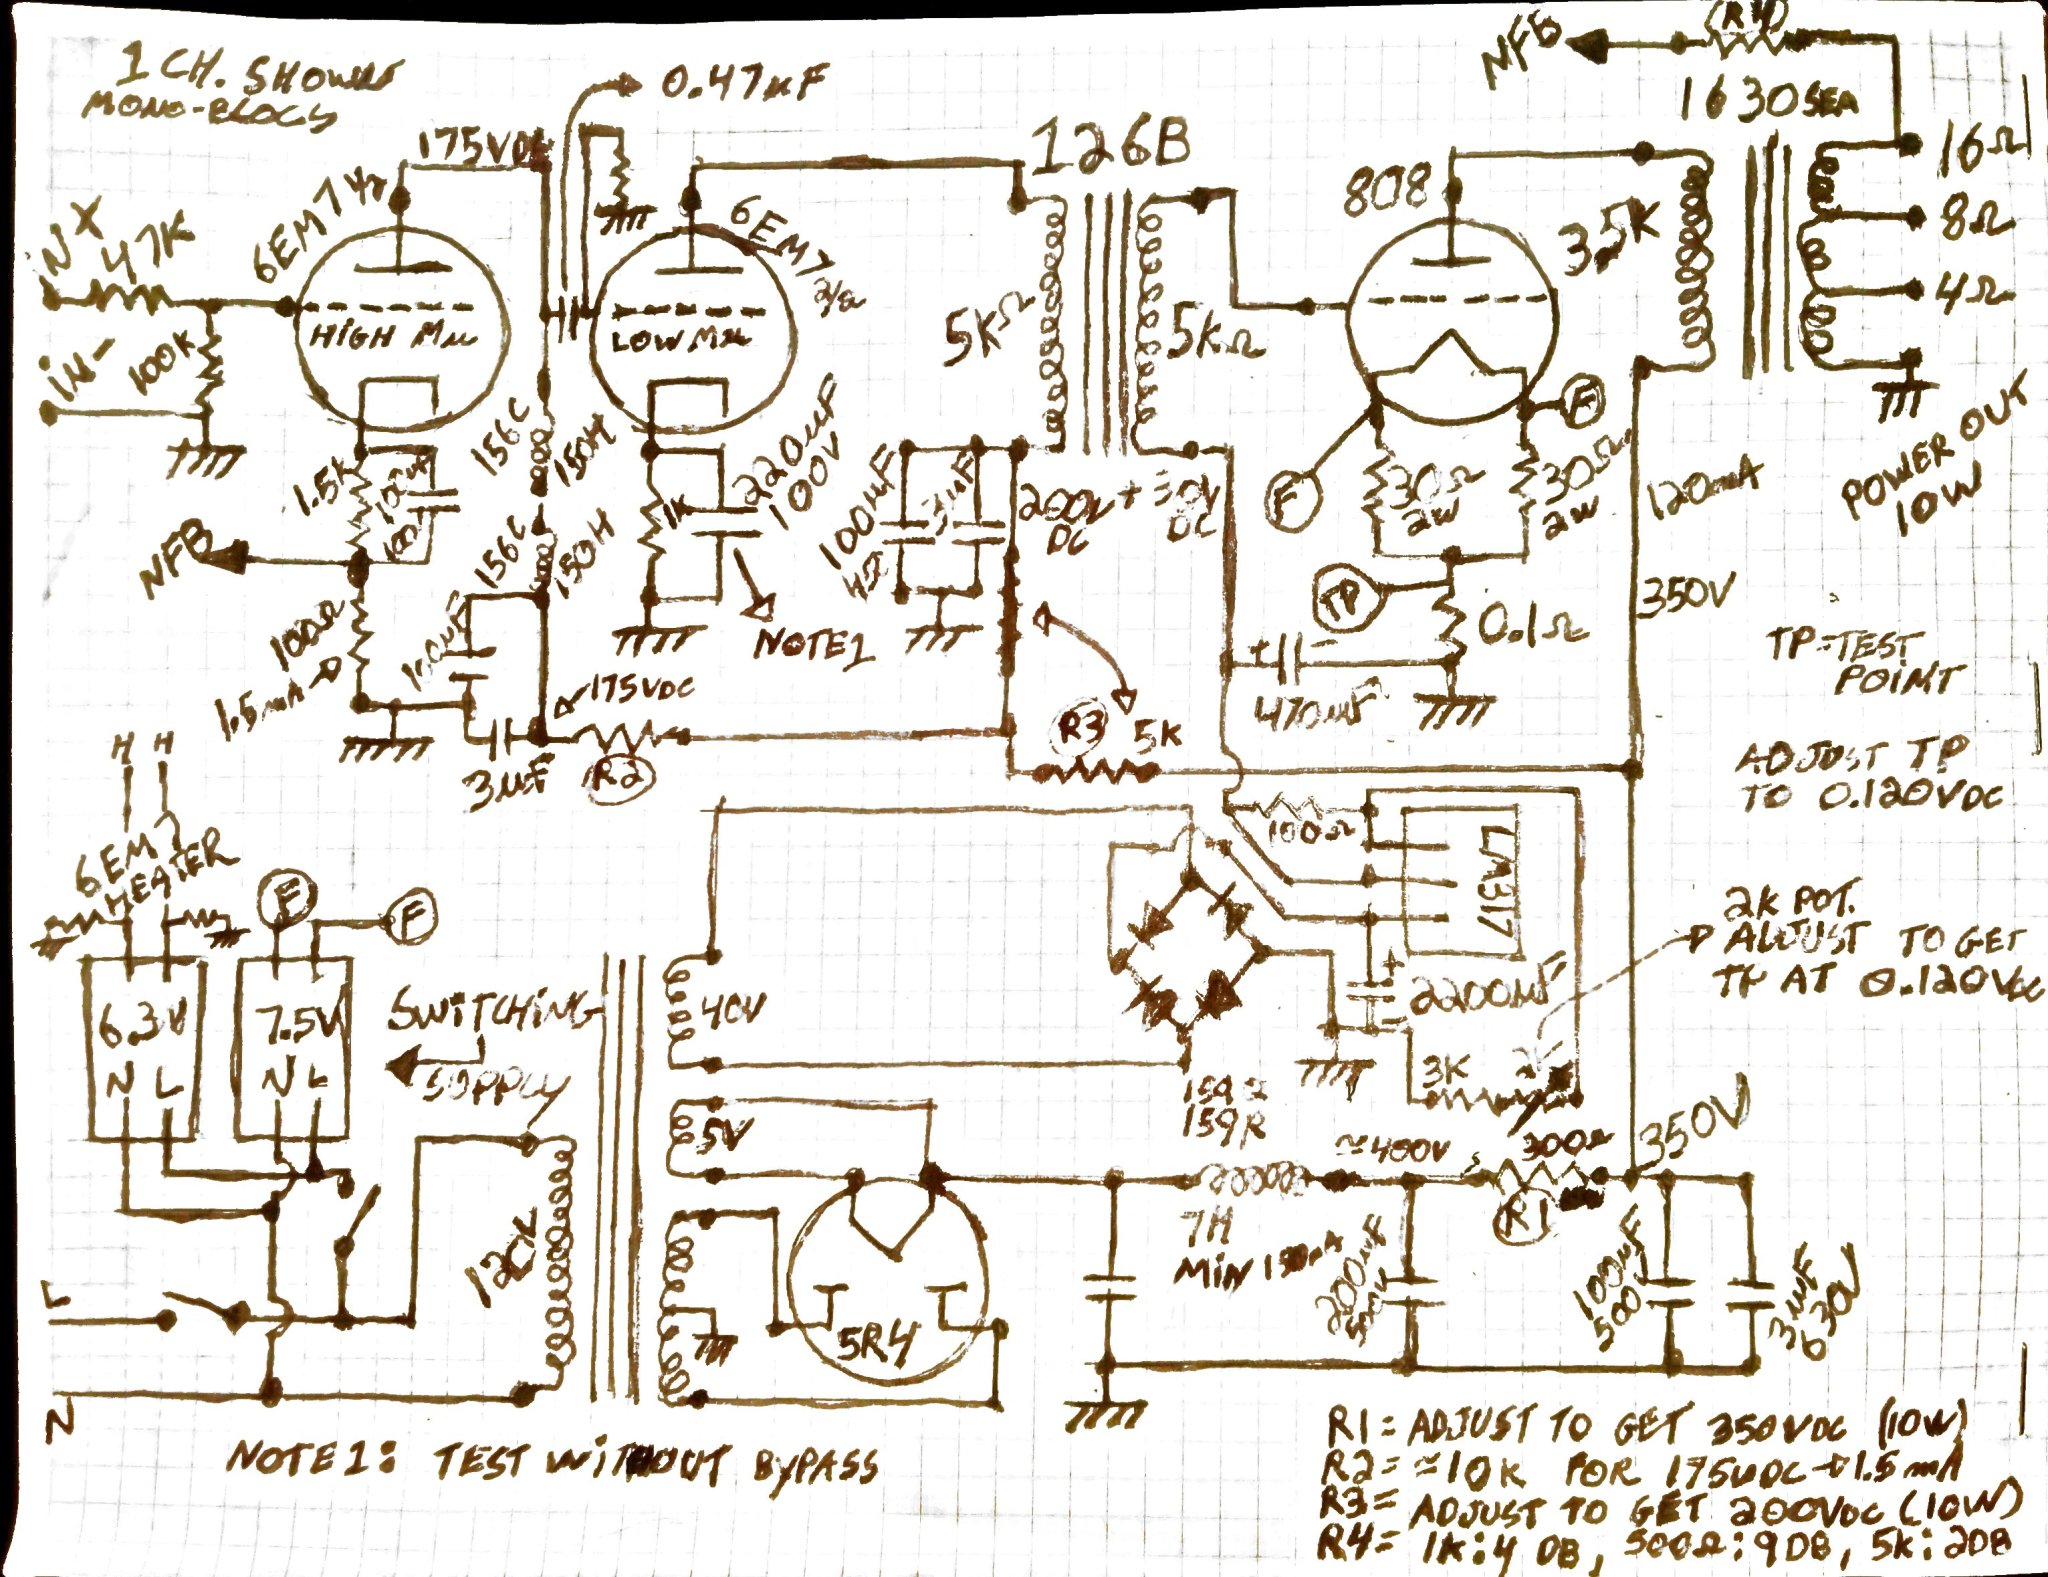 1 CH. SHOWN
MONO-BLOCS
0.47uF
NFB
(R4)
1630SEA
175VDC
126B
16Ω
8Ω
4Ω
808
3.5K
47K
6EM7 1/2
6EM7 1/2
HIGH Mu
LOW Mu
IN-
100K
5KΩ
5KΩ
F
F
156C
150H
156C
150H
220uF
100V
1K
1.5K
100uF
NFB
100Ω
1.5mA
100uF
3uF
NOTE1
100uF
3uF
200V
DC
+30V
DC
30Ω
2W
30Ω
2W
120mA
POWER OUT
10W
TP
0.1Ω
470uF
350V
TP=TEST
POINT
175VDC
R2
R3
5K
ADJUST TP
TO 0.120VDC
H H
6EM7
HEATER
F
F
100Ω
LM317
2K POT.
ADJUST TO GET
TP AT 0.120VDC
6.3V
N L
7.5V
N L
SWITCHING
SUPPLY
40V
2200uF
3K
2K
5V
159Q
159R
≈400V
300Ω
350V
7H
MIN 150mA
R1
120V
200uF
500V
100uF
500V
3uF
630V
5R4
L
N
NOTE1: TEST WITHOUT BYPASS
R1= ADJUST TO GET 350VDC (10W)
R2= ≈10K FOR 175VDC → 1.5mA
R3= ADJUST TO GET 200VDC (10W)
R4= 1K:4 DB, 500Ω:9DB, 5K:2DB